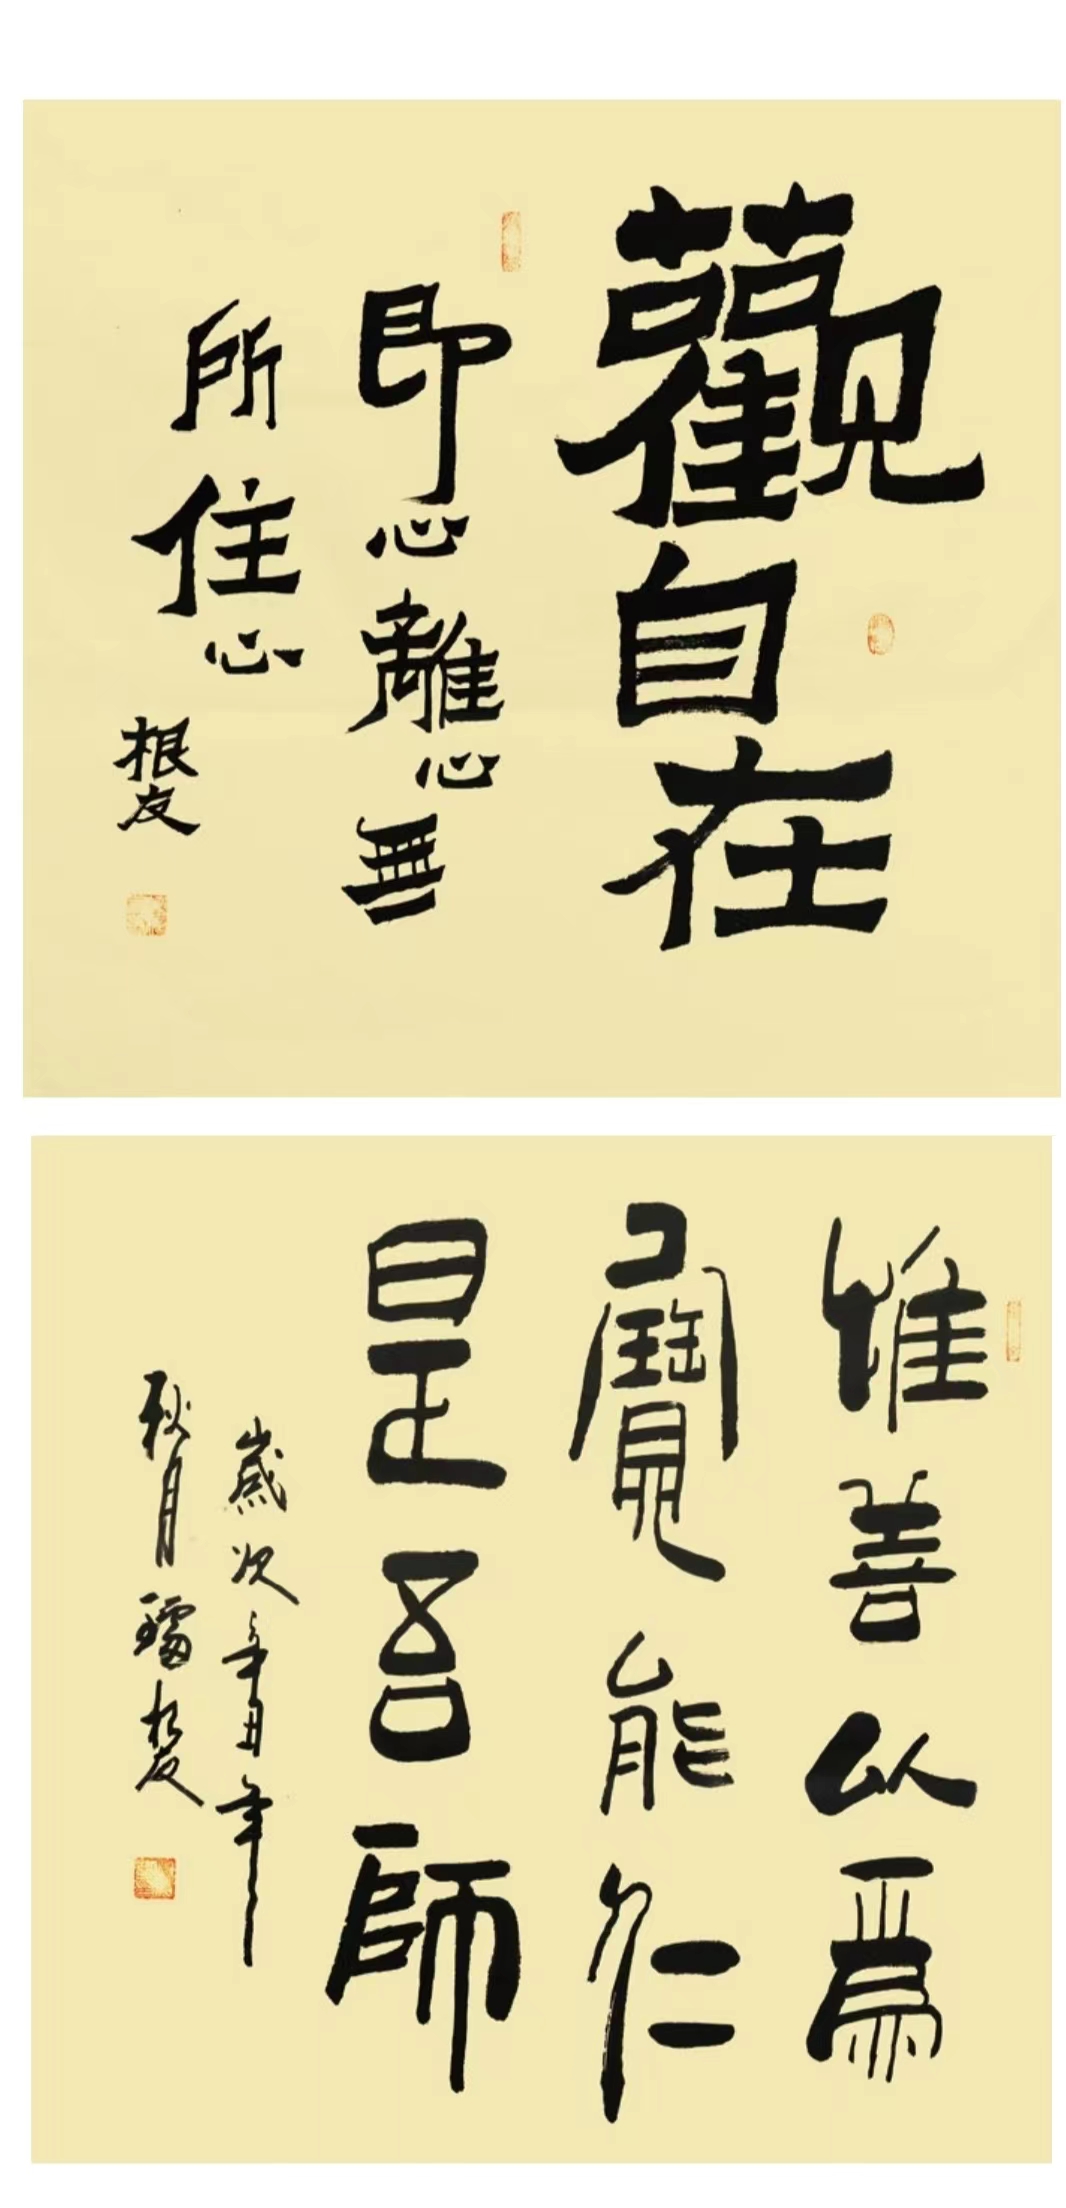 觀自在
即心離心無
所住心
根友
惟善以為
寶能仁
是吾師
歲次辛丑年
秋月 根友